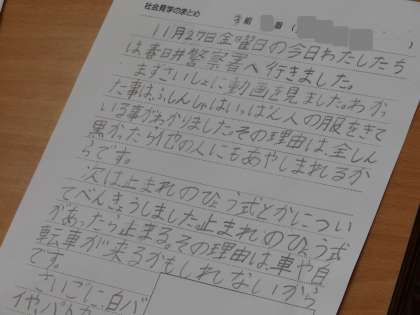 社会見学のまとめ
班 番（ ）
11月27日金曜日の今日わたしたち
は春日井警察署へ行きました。
まずさいしょに動画を見ました。わかっ
た事は、ふしんしゃはいっぱん人の服をきて
いる事がわかりました。その理由は全しん
黒かったら他の人にもあやしまれるか
らです。
次は止まれのひょう式とかについ
てべんきょうしました。止まれのひょう式
があったら止まる。その理由は車や自
転車が来るかもしれないから
です。
さいごに白バ
イや、パト